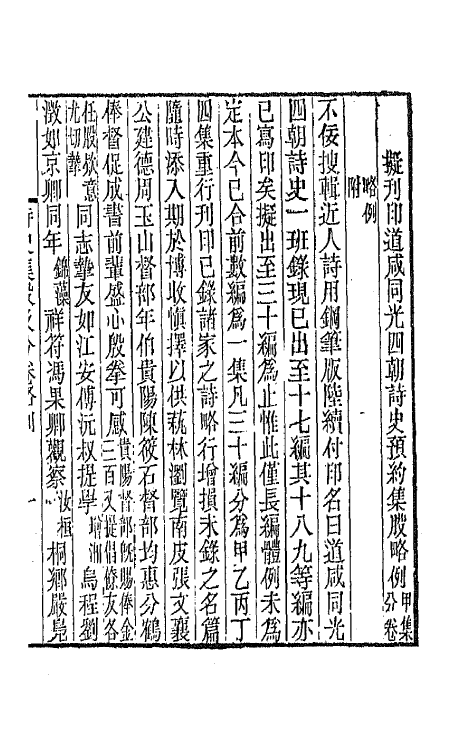 擬刊印道咸同光四朝詩史預約集股略例甲集分卷
略例附
不佞搜輯近人詩用鋼筆版陸續付印名曰道咸同光
四朝詩史一班錄現已出至十七編其十八九等編亦
已寫印矣擬出至三十編爲止惟此僅長編體例未爲
定本今已合前數編爲一集凡三十編分爲甲乙丙丁
四集重行刊印已錄諸家之詩略行增損未錄之名篇
隨時添入期於博收愼擇以供蓺林瀏覽南皮張文襄
公建德周玉山督部年伯貴陽陳筱石督部均惠分鶴
俸督促成書前輩盛心殷拳可感貴陽督部旣賜俸金三百又提倡僚友各
任股欵意尤切摯同志摯友如江安傅沅叔提學增湘烏程劉
澂如京卿同年錦藻祥符馮果卿觀察汝桓桐鄉嚴